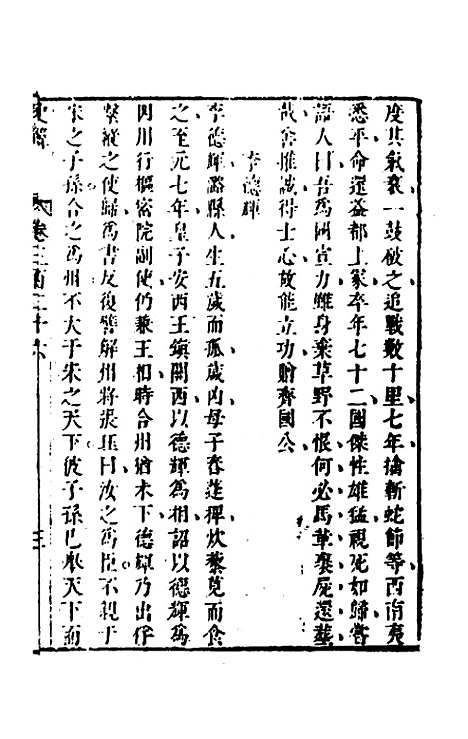 度其氣衰一鼓破之追戰數十里七年擒斬蛇節等西南夷
悉平命還益都上篆卒年七十二國傑性雄猛視死如歸嘗
語人曰吾為國宣力雖身棄草野不恨何必馬革裹屍還葬
哉善推誠得士心故能立功贈齊國公
李德輝
李德輝潞縣人生五歲而孤歲凶母子舂蓬稗炊藜莧而食
之至元七年皇子安西王鎮關西以德輝為相詔以德輝為
四川行樞密院副使仍兼王相時合州猶未下德輝乃出俘
繫縱之使歸為書反復譬解州將張珏曰汝之為臣不親于
宋之子孫合之為州不大于宋之天下彼子孫已舉天下而
史
卷三百二十六
三